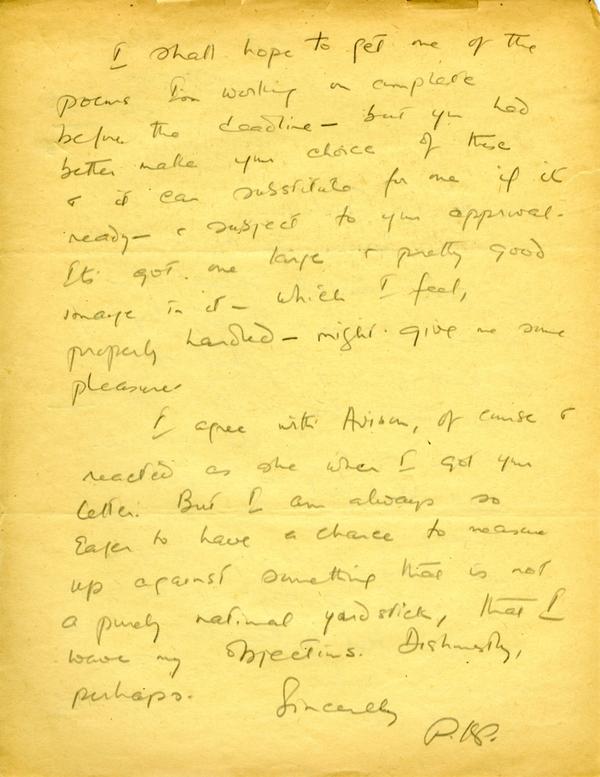 I shall hope to get one of the
poems I'm working on complete
before the deadline — but you had
better make your choice of these
& it can substitute for one if it
ready — & subject to your approval.
Its got one large & pretty good
image in it — which I feel,
properly handled — might give me some
pleasure.
I agree with Avison, of course &
reacted as she when I got your
letter. But I am always so
Eager to have a chance to measure
up against something that is not
a purely national yardstick, that I
wave my objections. Dishonestly,
perhaps.
Sincerely
P.K.P.